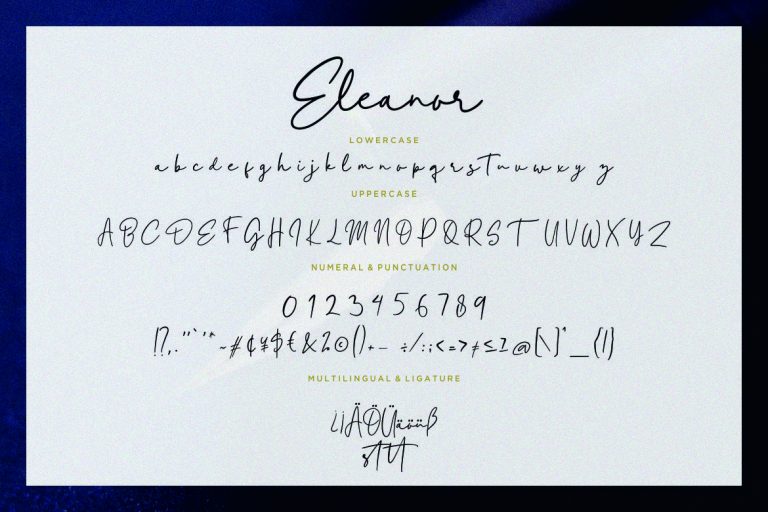 Eleanor
LOWERCASE
a b c d e f g h i j k l m n o p q r s t u v w x y z
UPPERCASE
A B C D E F G H I K L M N O P Q R S T U V W X Y Z
NUMERAL & PUNCTUATION
0 1 2 3 4 5 6 7 8 9
!?,.""`''*~#¢¥$€&©()+− ÷/:;<=>≠≤≥@[\]^_{|}
MULTILINGUAL & LIGATURE
¿¡ÄÖÜäöüß
st tt